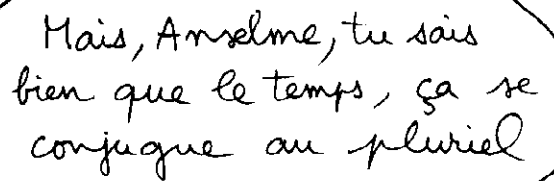 Mais, Anselme, tu sais
bien que le temps, ça se
conjugue au pluriel